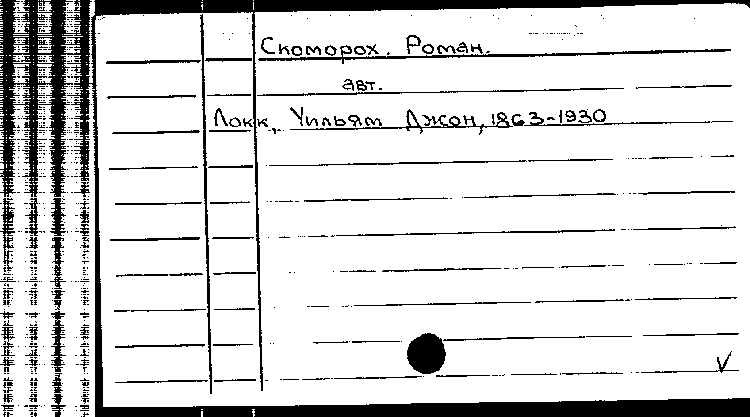 Скоморох. Роман.
авт.
Локк, Уильям Джон, 1863-1930
V